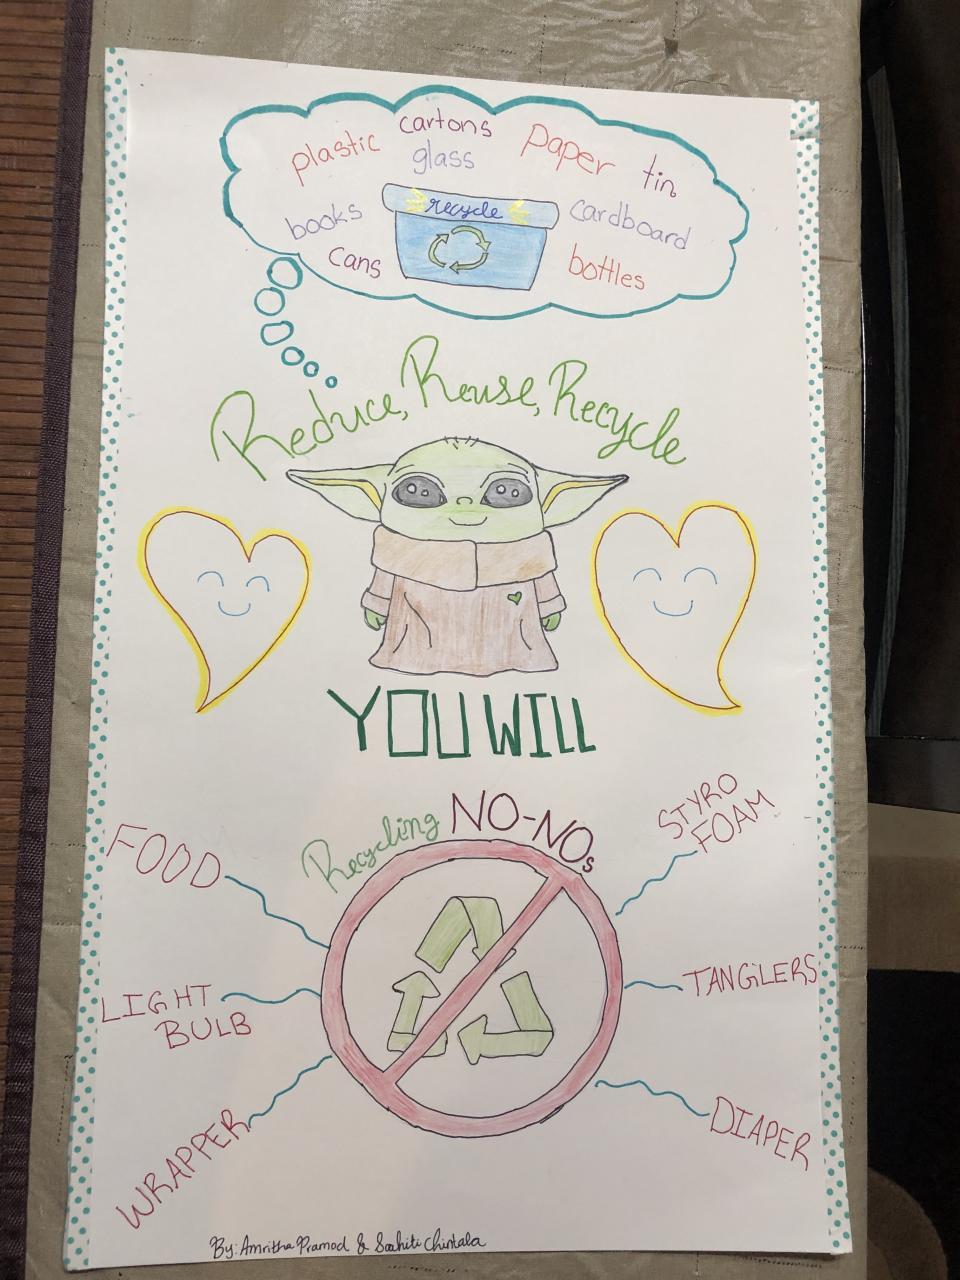 cartons
plastic glass paper tin
books recycle cardboard
cans bottles
Reduce, Reuse, Recycle
YOU WILL
Recycling NO-NOs
FOOD
STYRO
FOAM
LIGHT
BULB
TANGLERS
WRAPPER
DIAPER
By: Amritha Pramod & Saahiti Chintala